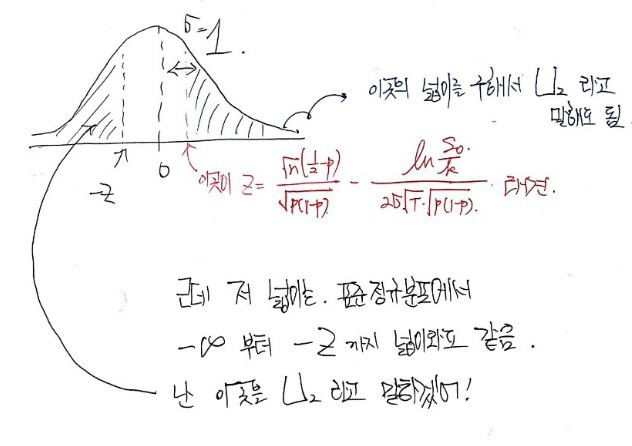 σ=1.
이곳의 넓이를 구해서 U₂ 라고
말해도 됨
-z
0
이곳이 z = \frac{\sqrt{n}(\frac{1}{2}-p)}{\sqrt{p(1-p)}} - \frac{\ln\frac{S_0}{k}}{2σ\sqrt{T}\cdot\sqrt{p(1-p)}} 라면.
근데 저 넓이는. 표준정규분포에서
-∞ 부터 -z 까지 넓이와도 같음.
난 이곳을 U₂ 라고 말하겠어!